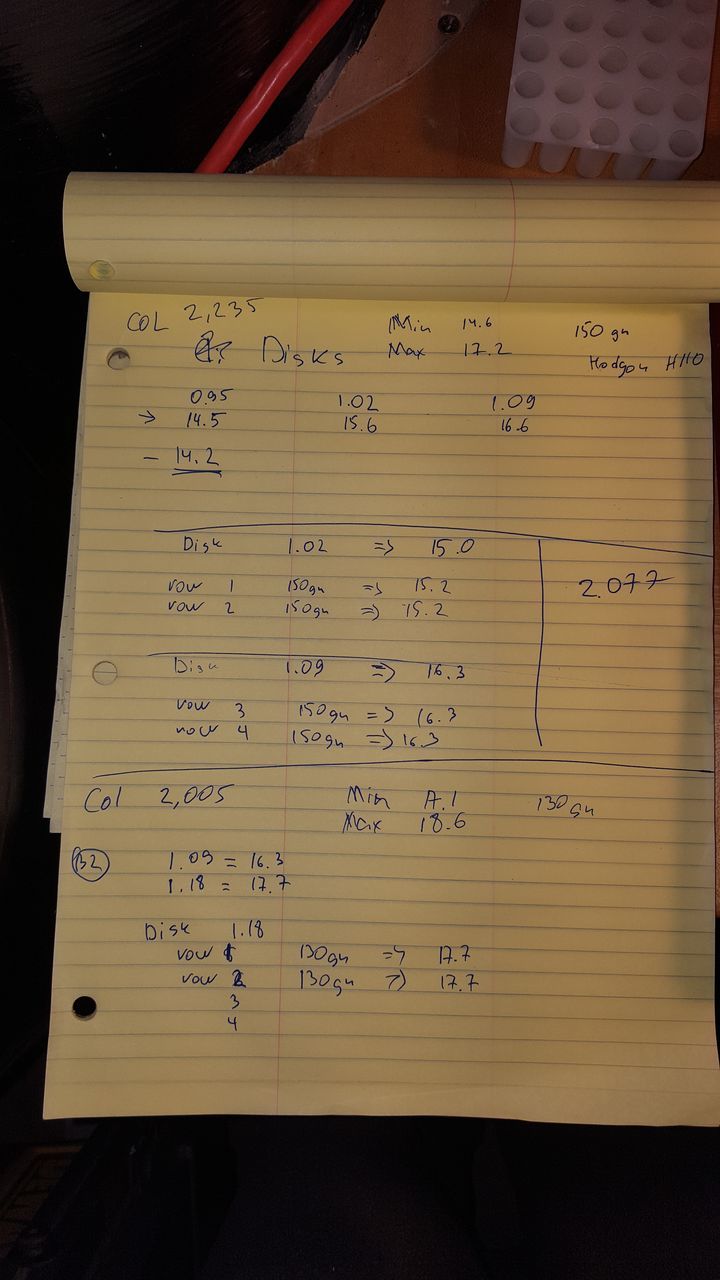 COL 2,235 Min 14.6 150 gn
Disks Max 17.2 Hodgon H110
0.95 1.02 1.09
→ 14.5 15.6 16.6
— 14.2
Disk 1.02 => 15.0
2.077
row 1 150gn => 15.2
row 2 150gn => 15.2
Disk 1.09 => 16.3
row 3 150gn => 16.3
row 4 150gn => 16.3
Col 2,005 Min 17.1 130gn
Max 18.6
B2 1.09 = 16.3
1.18 = 17.7
Disk 1.18
row 1 130gn => 17.7
row 2 130gn => 17.7
3
4